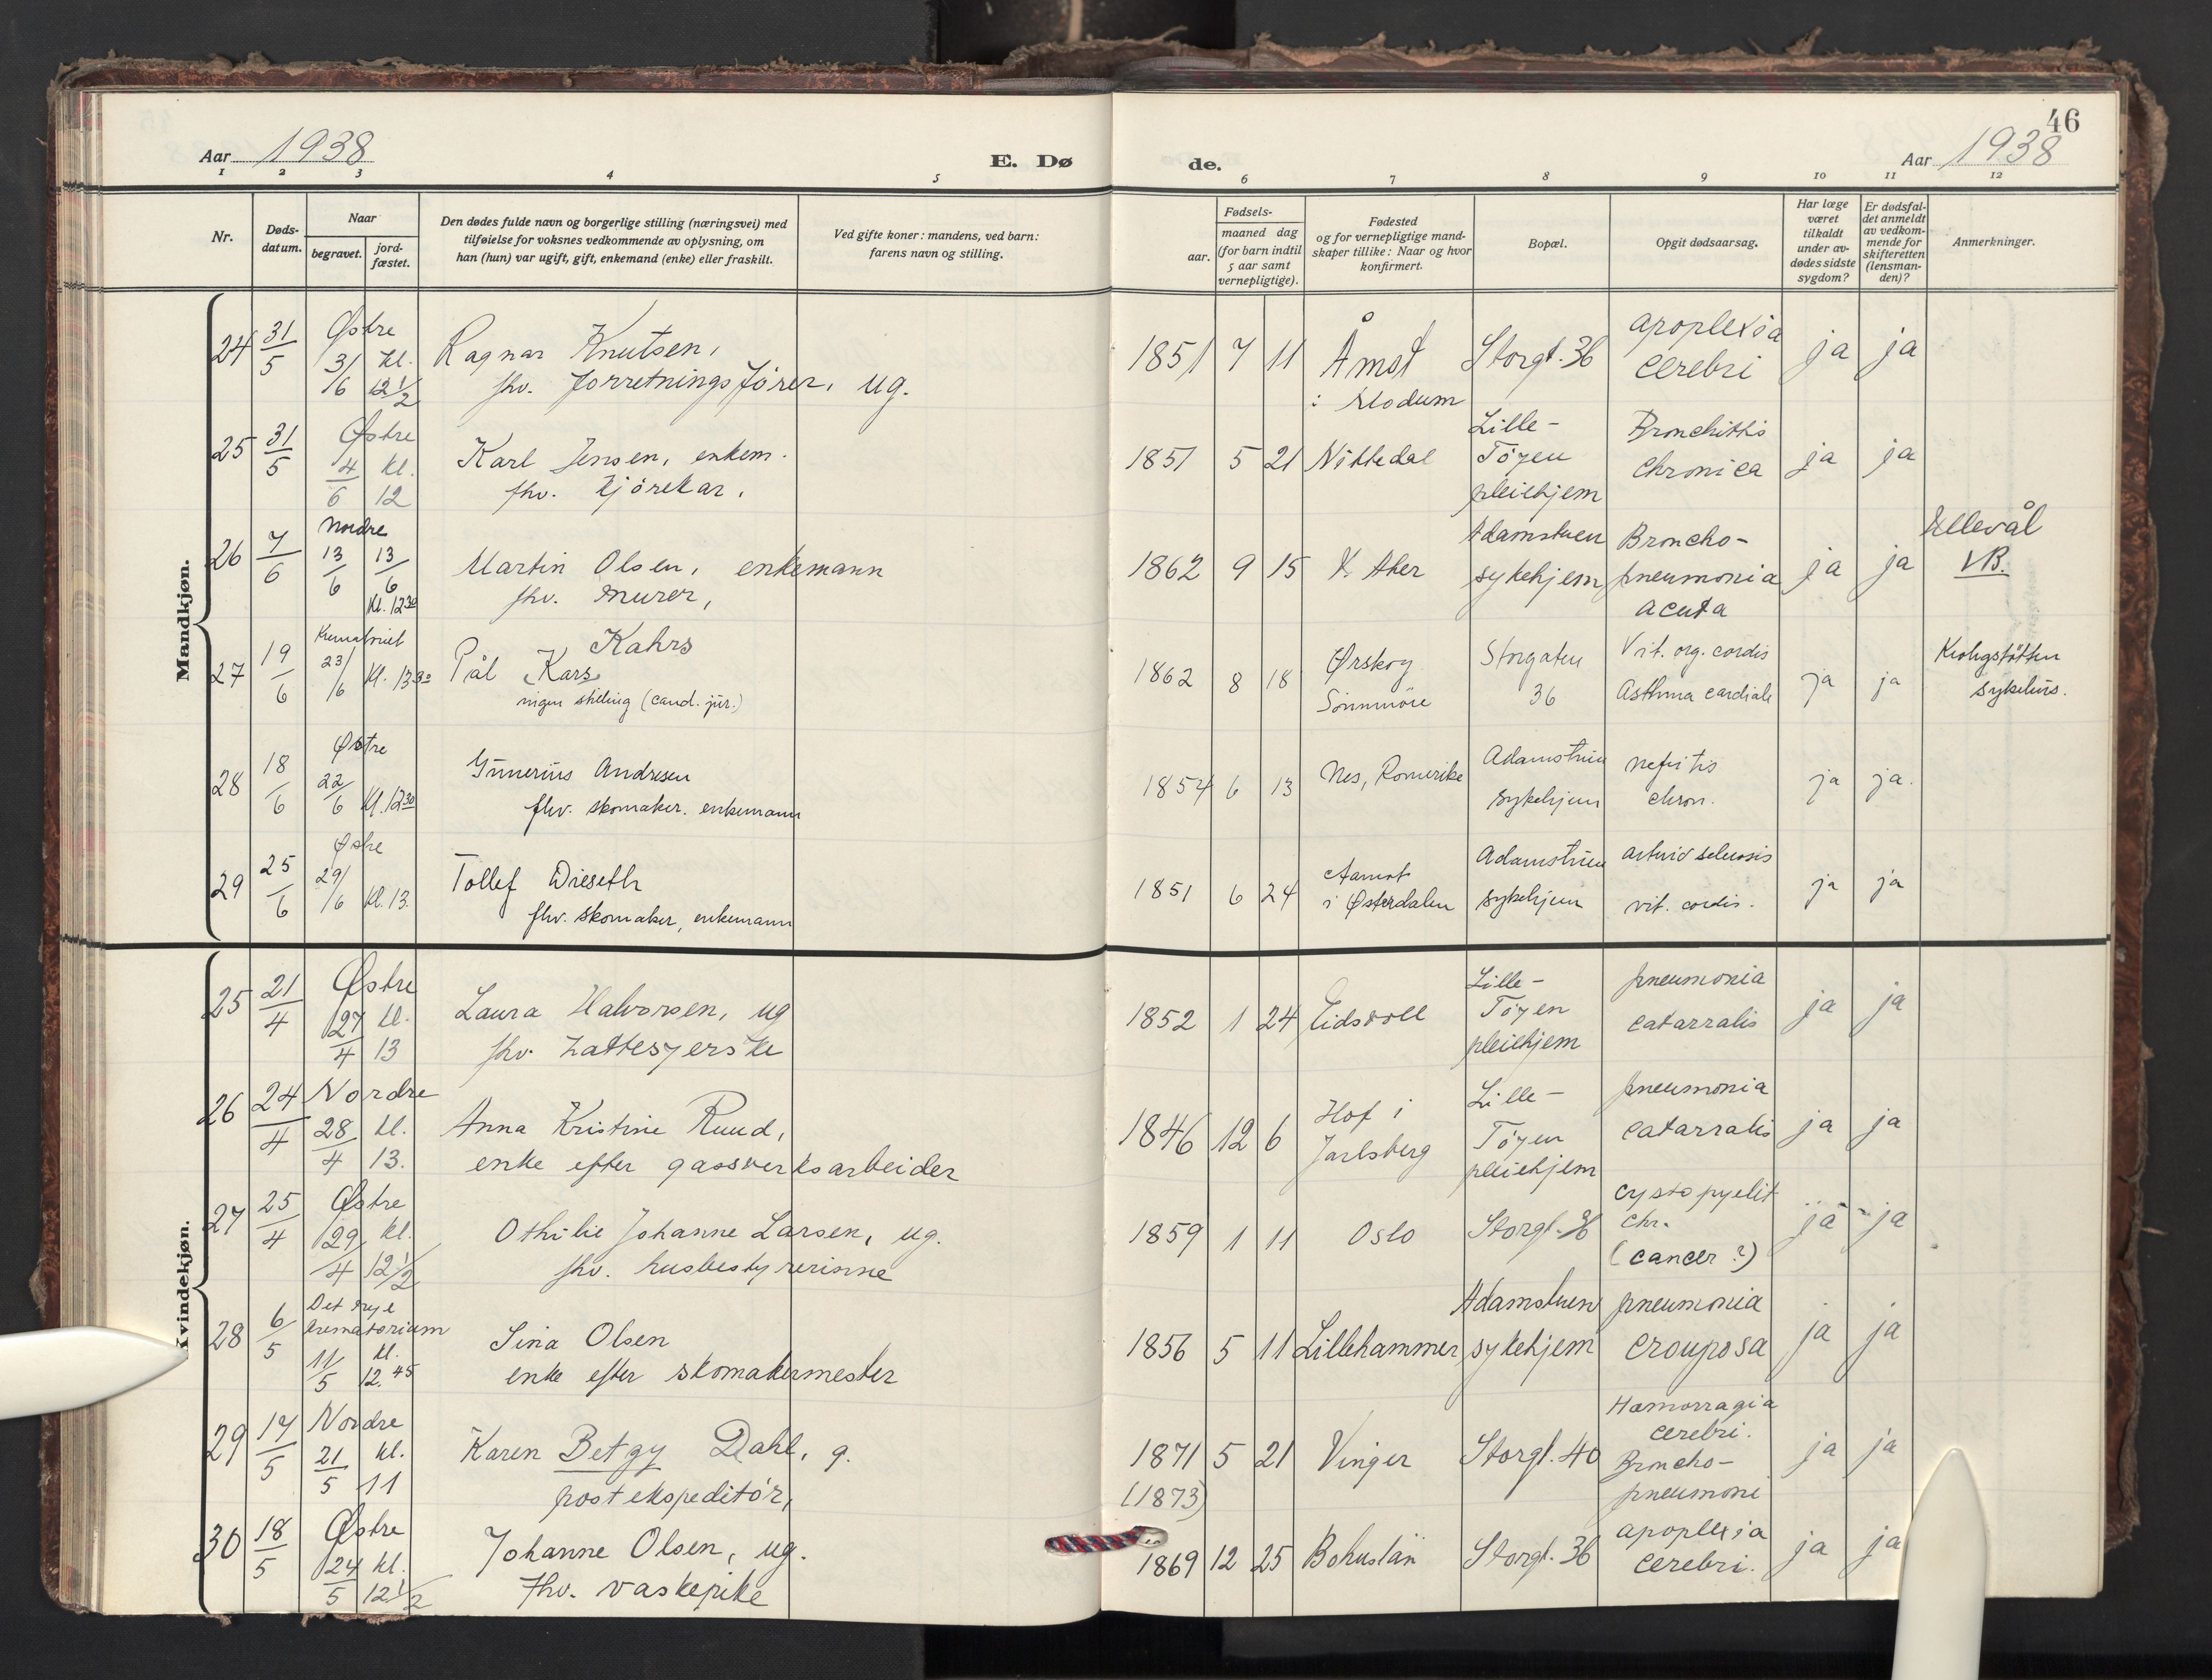 46
Aar 1938 E. Dø de. Aar 1938
1 2 3 4 5 6 7 8 9 10 11 12
Nr.
Døds-
datum.
Naar
begravet.
jord-
fæstet.
Den dødes fulde navn og borgerlige stilling (næringsvei) med
tilføielse for voksnes vedkommende av oplysning, om
han (hun) var ugift, gift, enkemand (enke) eller fraskilt.
Ved gifte koner: mandens, ved barn:
farens navn og stilling.
Fødsels-
aar.
maaned dag
(for barn indtil
5 aar samt
vernepligtige).
Fødested
og for vernepligtige mand-
skaper tillike: Naar og hvor
konfirmert.
Bopæl.
Opgit dødsaarsag.
Har læge
været
tilkaldt
under av-
dødes sidste
sygdom?
Er dødsfal-
det anmeldt
av vedkom-
mende for
skifteretten
(lensman-
den)?
Anmerkninger.
Mandkjøn.
24 31/5 Østre 3/6 kl. 12 1/2
Ragnar Knutsen,
fhv. forretningsfører, ug.
1851 7 11
Åmot
i Modum
Storgt. 36
apoplexia
cerebri
ja ja
25 31/5 Østre 4/6 kl. 12
Karl Jensen, enkem.
fhv. kjørekar,
1851 5 21 Nittedal
Lille-
Tøyen
pleiehjem
Bronchitis
chronica
ja ja
26 7/6 Nordre 13/6 13/6 Kl. 12 30
Martin Olsen, enkemann
fhv. murer,
1862 9 15 V. Aker
Adamstuen
sykehjem
Broncho-
pneumonia
acuta
ja ja
Ullevål
VB.
27 19/6 Krematoriet 23/6 Kl. 13 30
Kahrs
Pål Kars
ingen stilling (cand. jur.)
1862 8 18
Ørskog
Sunnmøre
Storgaten
36
Vit. org. cordis
Asthma cardiale
ja ja
Krohgstøtten
sykehus.
28 18/6 Østre 22/6 Kl. 12 30
Gunerius Andresen
fhv. skomaker. enkemann
1854 6 13 Nes, Romerike
Adamstuen
sykehjem
nefritis
chron.
ja ja.
29 25/6 Østre 29/6 Kl. 13.
Tollef Wieseth
fhv. skomaker, enkemann
1851 6 24
Aamot
i Østerdalen
Adamstuen
sykehjem
arteriosclerosis
vit. cordis.
ja ja
Kvindekjøn.
25 21/4 Østre 27/4 kl. 13
Laura Halvorsen, ug
fhv. hattesyerske
1852 1 24 Eidsvoll
Lille-
Tøyen
pleiehjem
pneumonia
catarralis
ja ja
26 24/4 Nordre 28/4 kl. 13.
Anna Kristine Ruud,
enke efter gassverksarbeider
1846 12 6
Hof i
Jarlsberg
Lille-
Tøyen
pleiehjem
pneumonia
catarralis
ja ja
27 25/4 Østre 29/4 kl. 12 1/2
Othilie Johanne Larsen, ug.
fhv. husbestyrerinne
1859 1 11 Oslo Storgt. 36
cystopyelit
chr.
(cancer?)
ja ja
28 6/5 Det nye
krematorium
11/5 kl. 12.45
Sina Olsen
enke efter skomakermester
1856 5 11 Lillehammer
Adamstuen
sykehjem
pneumonia
crouposa
ja ja
29 17/5 Nordre 21/5 kl. 11
Karen Betzy Dahl, g.
postekspeditør,
1871 5 21 Vinger Storgt. 40
(1873)
Hæmorragia
cerebri.
Broncho-
pneumoni
ja ja
30 18/5 Østre 24/5 kl. 12 1/2
Johanne Olsen, ug.
fhv. vaskepike
1869 12 25 Bohuslän Storgt. 36
apoplexia
cerebri.
ja ja